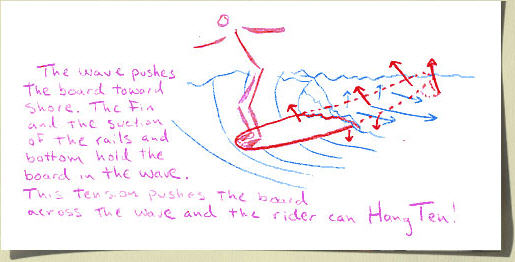 The wave pushes
The board toward
Shore. The Fin
and the suction
of the rails and
bottom hold the
board in the wave.
This Tension pushes the board
across the wave and the rider can Hang Ten!